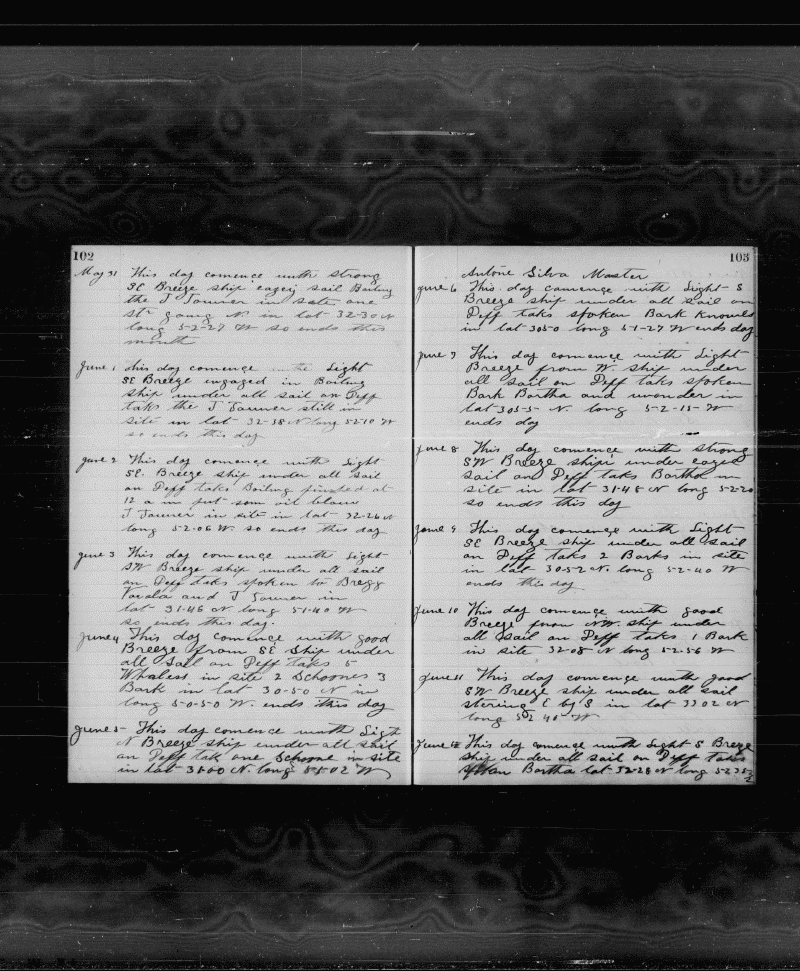 102
May 31 This day comence with strong
SE Breeze ship eazey sail Boiling
the J Towner in site one
Str going N in lat 32-30 N
long 52-27 W so ends this
month
June 1 this day comence with Light
SE Breeze engaged in Boiling
ship under all sail on Deff
taks the J Towner still in
site in lat 32-38 N long 52-10 W
so ends this day
June 2 This day comence with Light
SE. Breeze ship under all sail
on Deff taks Boiling finded at
12 a m put som oil below
J Towner in site in lat 32-26 N
long 52-06 W. so ends this day
June 3 This day comence with Light
SW Breeze ship under all sail
on Deff taks spoken to Bregg
and J Towner in
lat 31-46 N long 51-40 W
so ends this day.
June 4 This day comence with good
Breeze from SE Ship under
all sail on Deff taks 5
Whalers in site 2 Schoones 3
Bark in lat 30-50 N in
long 50-50 W. ends this day
June 5 This day comence with Ligh
N Breeze ship under all sail
on Deff tak one Schoone in site
in lat 31-00 N. long 51-02 W
103
Antone Silva Master
June 6 This day comence with Light S
Breeze ship under all sail on
Deff taks spoken Bark Knowles
in lat 30-50 long 51-27 W ends day
June 7 This day comence with Light
Breeze from W. ship under
all sail on Deff taks spoken
Bark Bartha and wonder in
lat 30-55 N. long 52-15 W
ends day
June 8 This day comence with strong
SW Breeze ship under eazey
sail on Deff taks Bartha in
site in lat 31-48 N long 52-20
so ends this day
June 9 This day comence with Light
SE Breeze ship under all sail
on Deff taks 2 Barks in site
in lat 30-52 N. long 52-40 W
ends this day
June 10 This day comence with good
Breeze from NW. ship under
all sail on Deff taks 1 Bark
in site 32-08 N long 52-56 W
June 11 This day comence with good
SW Breeze ship under all sail
stering E by S in lat 33 02 N
long 52 40 W
June 12 This day comence with Light S Breeze
ship under all sail on Deff taks
spoken Bartha lat 32-28 N long 52-38